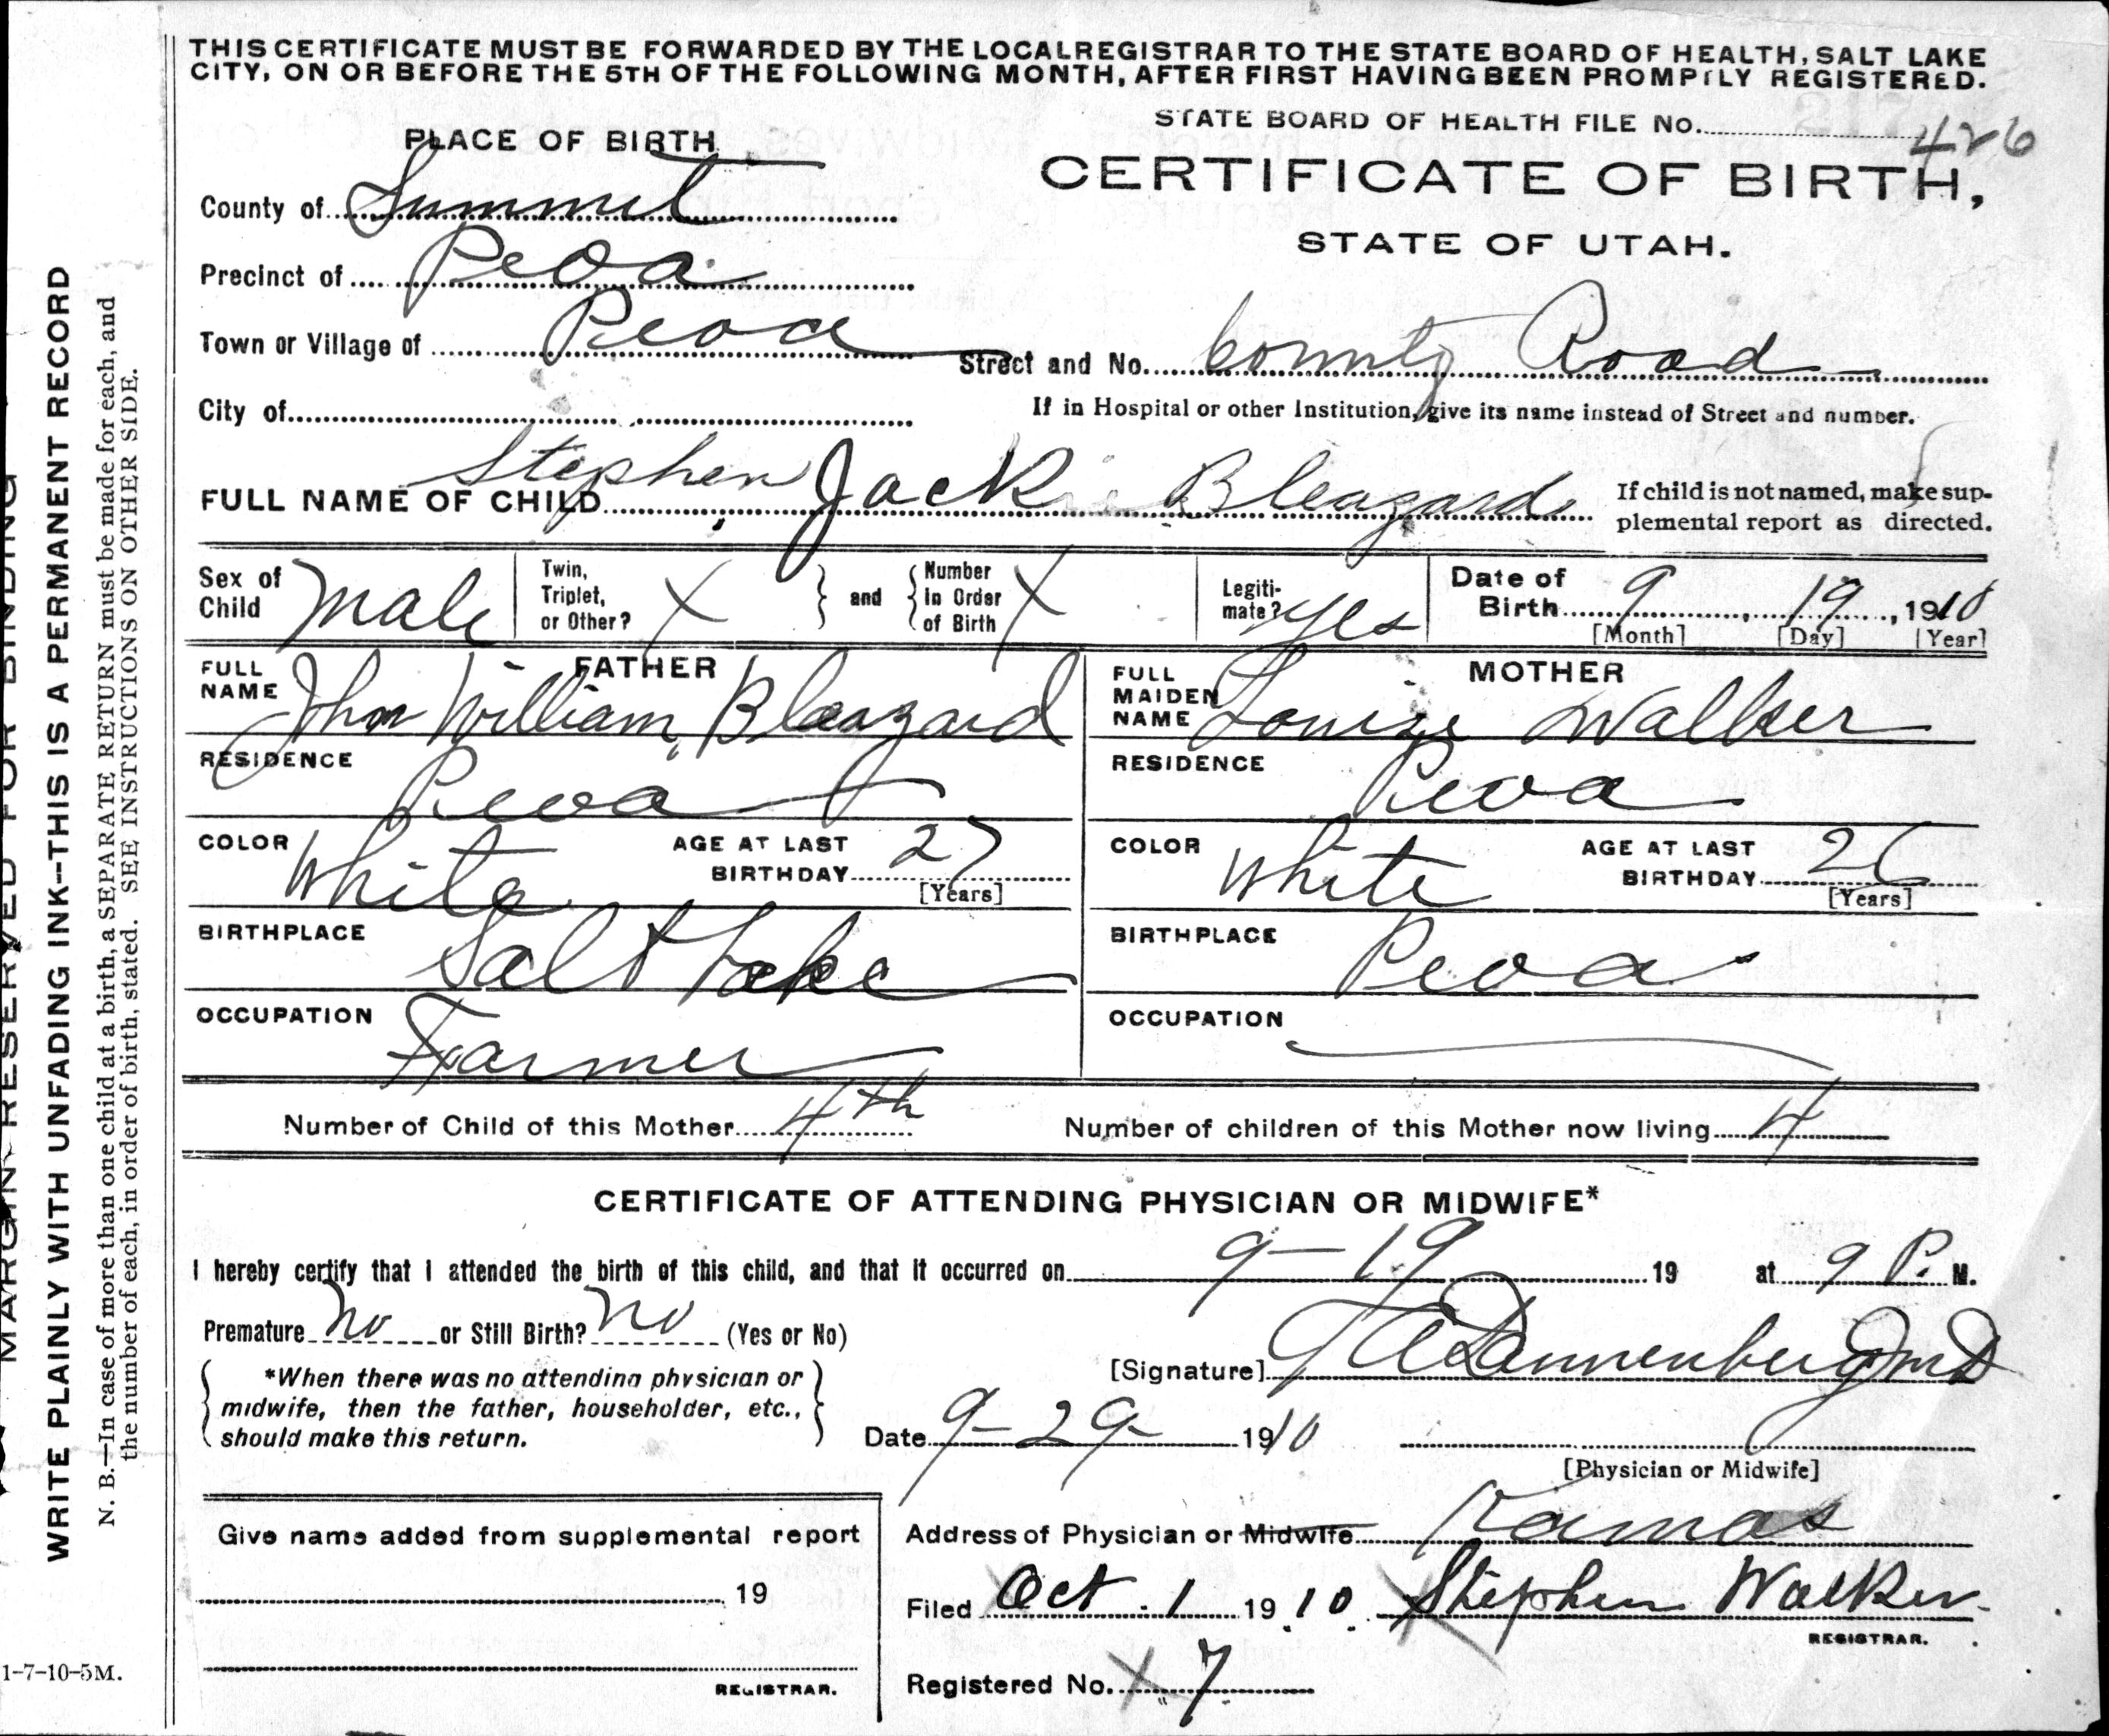 THIS CERTIFICATE MUST BE FORWARDED BY THE LOCAL REGISTRAR TO THE STATE BOARD OF HEALTH, SALT LAKE
CITY, ON OR BEFORE THE 5TH OF THE FOLLOWING MONTH, AFTER FIRST HAVING BEEN PROMPTLY REGISTERED.
STATE BOARD OF HEALTH FILE No. 426
PLACE OF BIRTH
CERTIFICATE OF BIRTH,
STATE OF UTAH.
County of Summit
Precinct of Peoa
Town or Village of Peoa
Street and No. County Road
City of
If in Hospital or other Institution, give its name instead of Street and number.
FULL NAME OF CHILD Stephen Jack Bleazard
If child is not named, make sup-
plemental report as directed.
Sex of Child Male
Twin, Triplet, or Other? X
and
Number In Order of Birth X
Legiti-mate? Yes
Date of Birth 9, 19, 1910
[Month] [Day] [Year]
FATHER
FULL NAME John William Bleazard
RESIDENCE Peoa
COLOR White
AGE AT LAST BIRTHDAY 27
[Years]
BIRTHPLACE Salt Lake
OCCUPATION Farmer
MOTHER
FULL MAIDEN NAME Louize Walker
RESIDENCE Peoa
COLOR White
AGE AT LAST BIRTHDAY 26
[Years]
BIRTHPLACE Peoa
OCCUPATION
Number of Child of this Mother 4th
Number of children of this Mother now living 4
CERTIFICATE OF ATTENDING PHYSICIAN OR MIDWIFE*
I hereby certify that I attended the birth of this child, and that it occurred on 9-19 19 at 9 P. M.
Premature No or Still Birth? No (Yes or No)
*When there was no attending physician or
midwife, then the father, householder, etc.,
should make this return.
[Signature] Dannenberg MD
Date 9-29- 1910
[Physician or Midwife]
Give name added from supplemental report
19
REGISTRAR.
Address of Physician or Midwife Kamas
Filed Oct. 1 1910. Stephen Walker.
REGISTRAR.
Registered No. X 7
MARGIN RESERVED FOR BINDING
WRITE PLAINLY WITH UNFADING INK—THIS IS A PERMANENT RECORD
N. B.—In case of more than one child at a birth, a SEPARATE RETURN must be made for each, and
the number of each, in order of birth, stated. SEE INSTRUCTIONS ON OTHER SIDE.
1-7-10-5M.